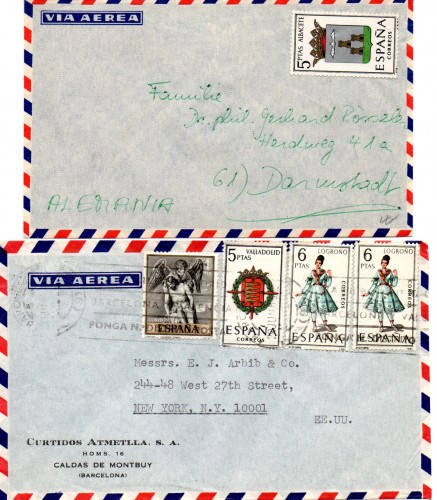 VIA AEREA
5 PTAS ALBACETE
ESPAÑA
CORREOS
Familie
Dr. phil. Gerhard
Herdweg 41a
61) Darmstadt
ALEMANIA
VIA AEREA
ESPAÑA
5 PTAS
VALLADOLID
ESPAÑA
CORREOS
6 PTAS
LOGROÑO
CORREOS
ESPAÑA
6 PTAS
LOGROÑO
CORREOS
ESPAÑA
BARCELONA
PONGA
Messrs. E. J. Arbib & Co.
244-48 West 27th Street,
NEW YORK, N.Y. 10001
EE.UU.
CURTIDOS ATMETLLA, S. A.
HOMS, 16
CALDAS DE MONTBUY
(BARCELONA)